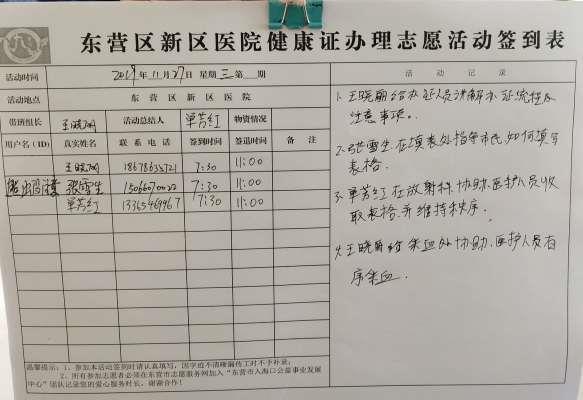 东营区新区医院健康证办理志愿活动签到表
活动时间 2019年11月27日 星期三 第 期
活动地点 东营区新区医院
带班组长 王晓丽 活动总结人 单芳红 物资情况
用户名（ID） 真实姓名 联系电话 签到时间 签退时间 备注
王晓丽 7:30 11:00
张雪生 7:30 11:00
单芳红 13365469967 7:30 11:00
温馨提示：1、参加本活动签到时请认真填写，因字迹不清晰漏传工时不予补录；
2、所有参加志愿者必须在东营市志愿服务网加入“东营市入海口公益事业发展
中心”团队记录您的爱心服务时长，谢谢合作！
活动记录
1、王晓丽给办证人员讲解办证流程及
注意事项。
2、张雪生在填表处指导市民如何填写
表格。
3、单芳红在放射科协助医护人员收
取表格并维持秩序。
4、王晓丽给采血处协助医护人员有
序采血。